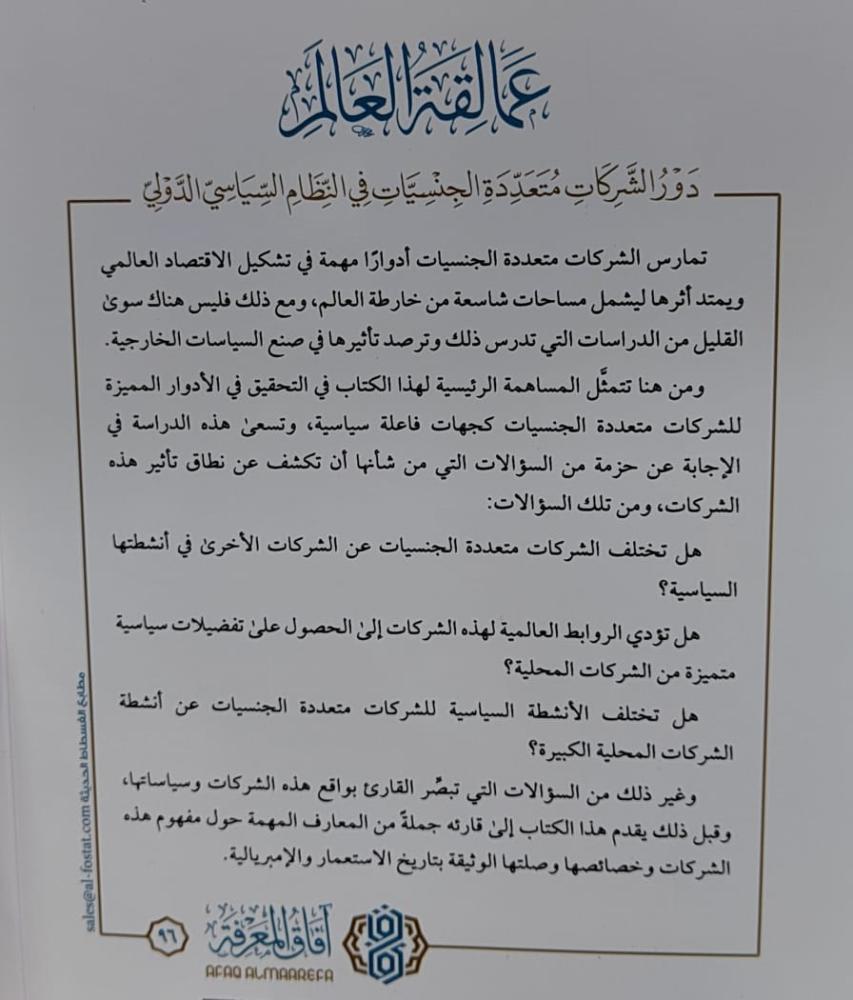 عَمَالِقَةُ العَالَمِ
دَوْرُ الشَّرِكَاتِ مُتَعَدِّدَةِ الجِنْسِيَّاتِ فِي النِّظَامِ السِّيَاسِيّ الدَّوْليّ
تمارس الشركات متعددة الجنسيات أدوارًا مهمة في تشكيل الاقتصاد العالمي
ويمتد أثرها ليشمل مساحات شاسعة من خارطة العالم، ومع ذلك فليس هناك سوىٰ
القليل من الدراسات التي تدرس ذلك وترصد تأثيرها في صنع السياسات الخارجية.
ومن هنا تتمثَّل المساهمة الرئيسية لهذا الكتاب في التحقيق في الأدوار المميزة
للشركات متعددة الجنسيات كجهات فاعلة سياسية، وتسعىٰ هذه الدراسة في
الإجابة عن حزمة من السؤالات التي من شأنها أن تكشف عن نطاق تأثير هذه
الشركات، ومن تلك السؤالات:
هل تختلف الشركات متعددة الجنسيات عن الشركات الأخرىٰ في أنشطتها
السياسية؟
هل تؤدي الروابط العالمية لهذه الشركات إلىٰ الحصول علىٰ تفضيلات سياسية
متميزة من الشركات المحلية؟
هل تختلف الأنشطة السياسية للشركات متعددة الجنسيات عن أنشطة
الشركات المحلية الكبيرة؟
وغير ذلك من السؤالات التي تبصِّر القارئ بواقع هذه الشركات وسياساتها،
وقبل ذلك يقدم هذا الكتاب إلىٰ قارئه جملةً من المعارف المهمة حول مفهوم هذه
الشركات وخصائصها وصلتها الوثيقة بتاريخ الاستعمار والإمبريالية.
مطابع الفسطاط الحديثة sales@al-fostat.com
آفَاقُ المَعْرِفَةِ
AFAQ ALMAAREFA
٩٦